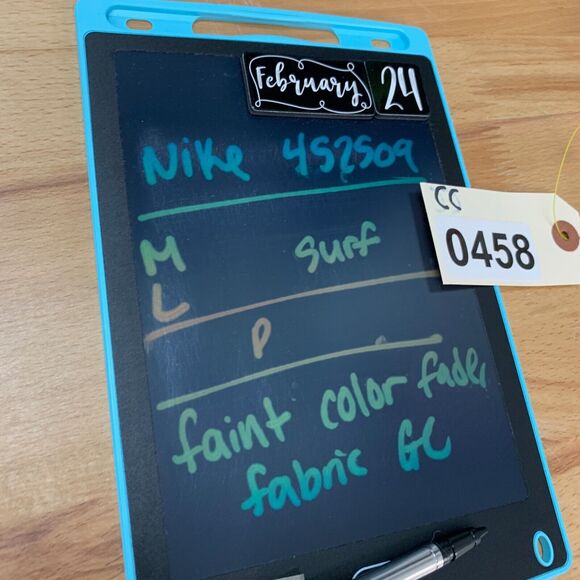 February 24
Nike 452509
CC
0458
M surf
L
P
faint color fade,
fabric GC